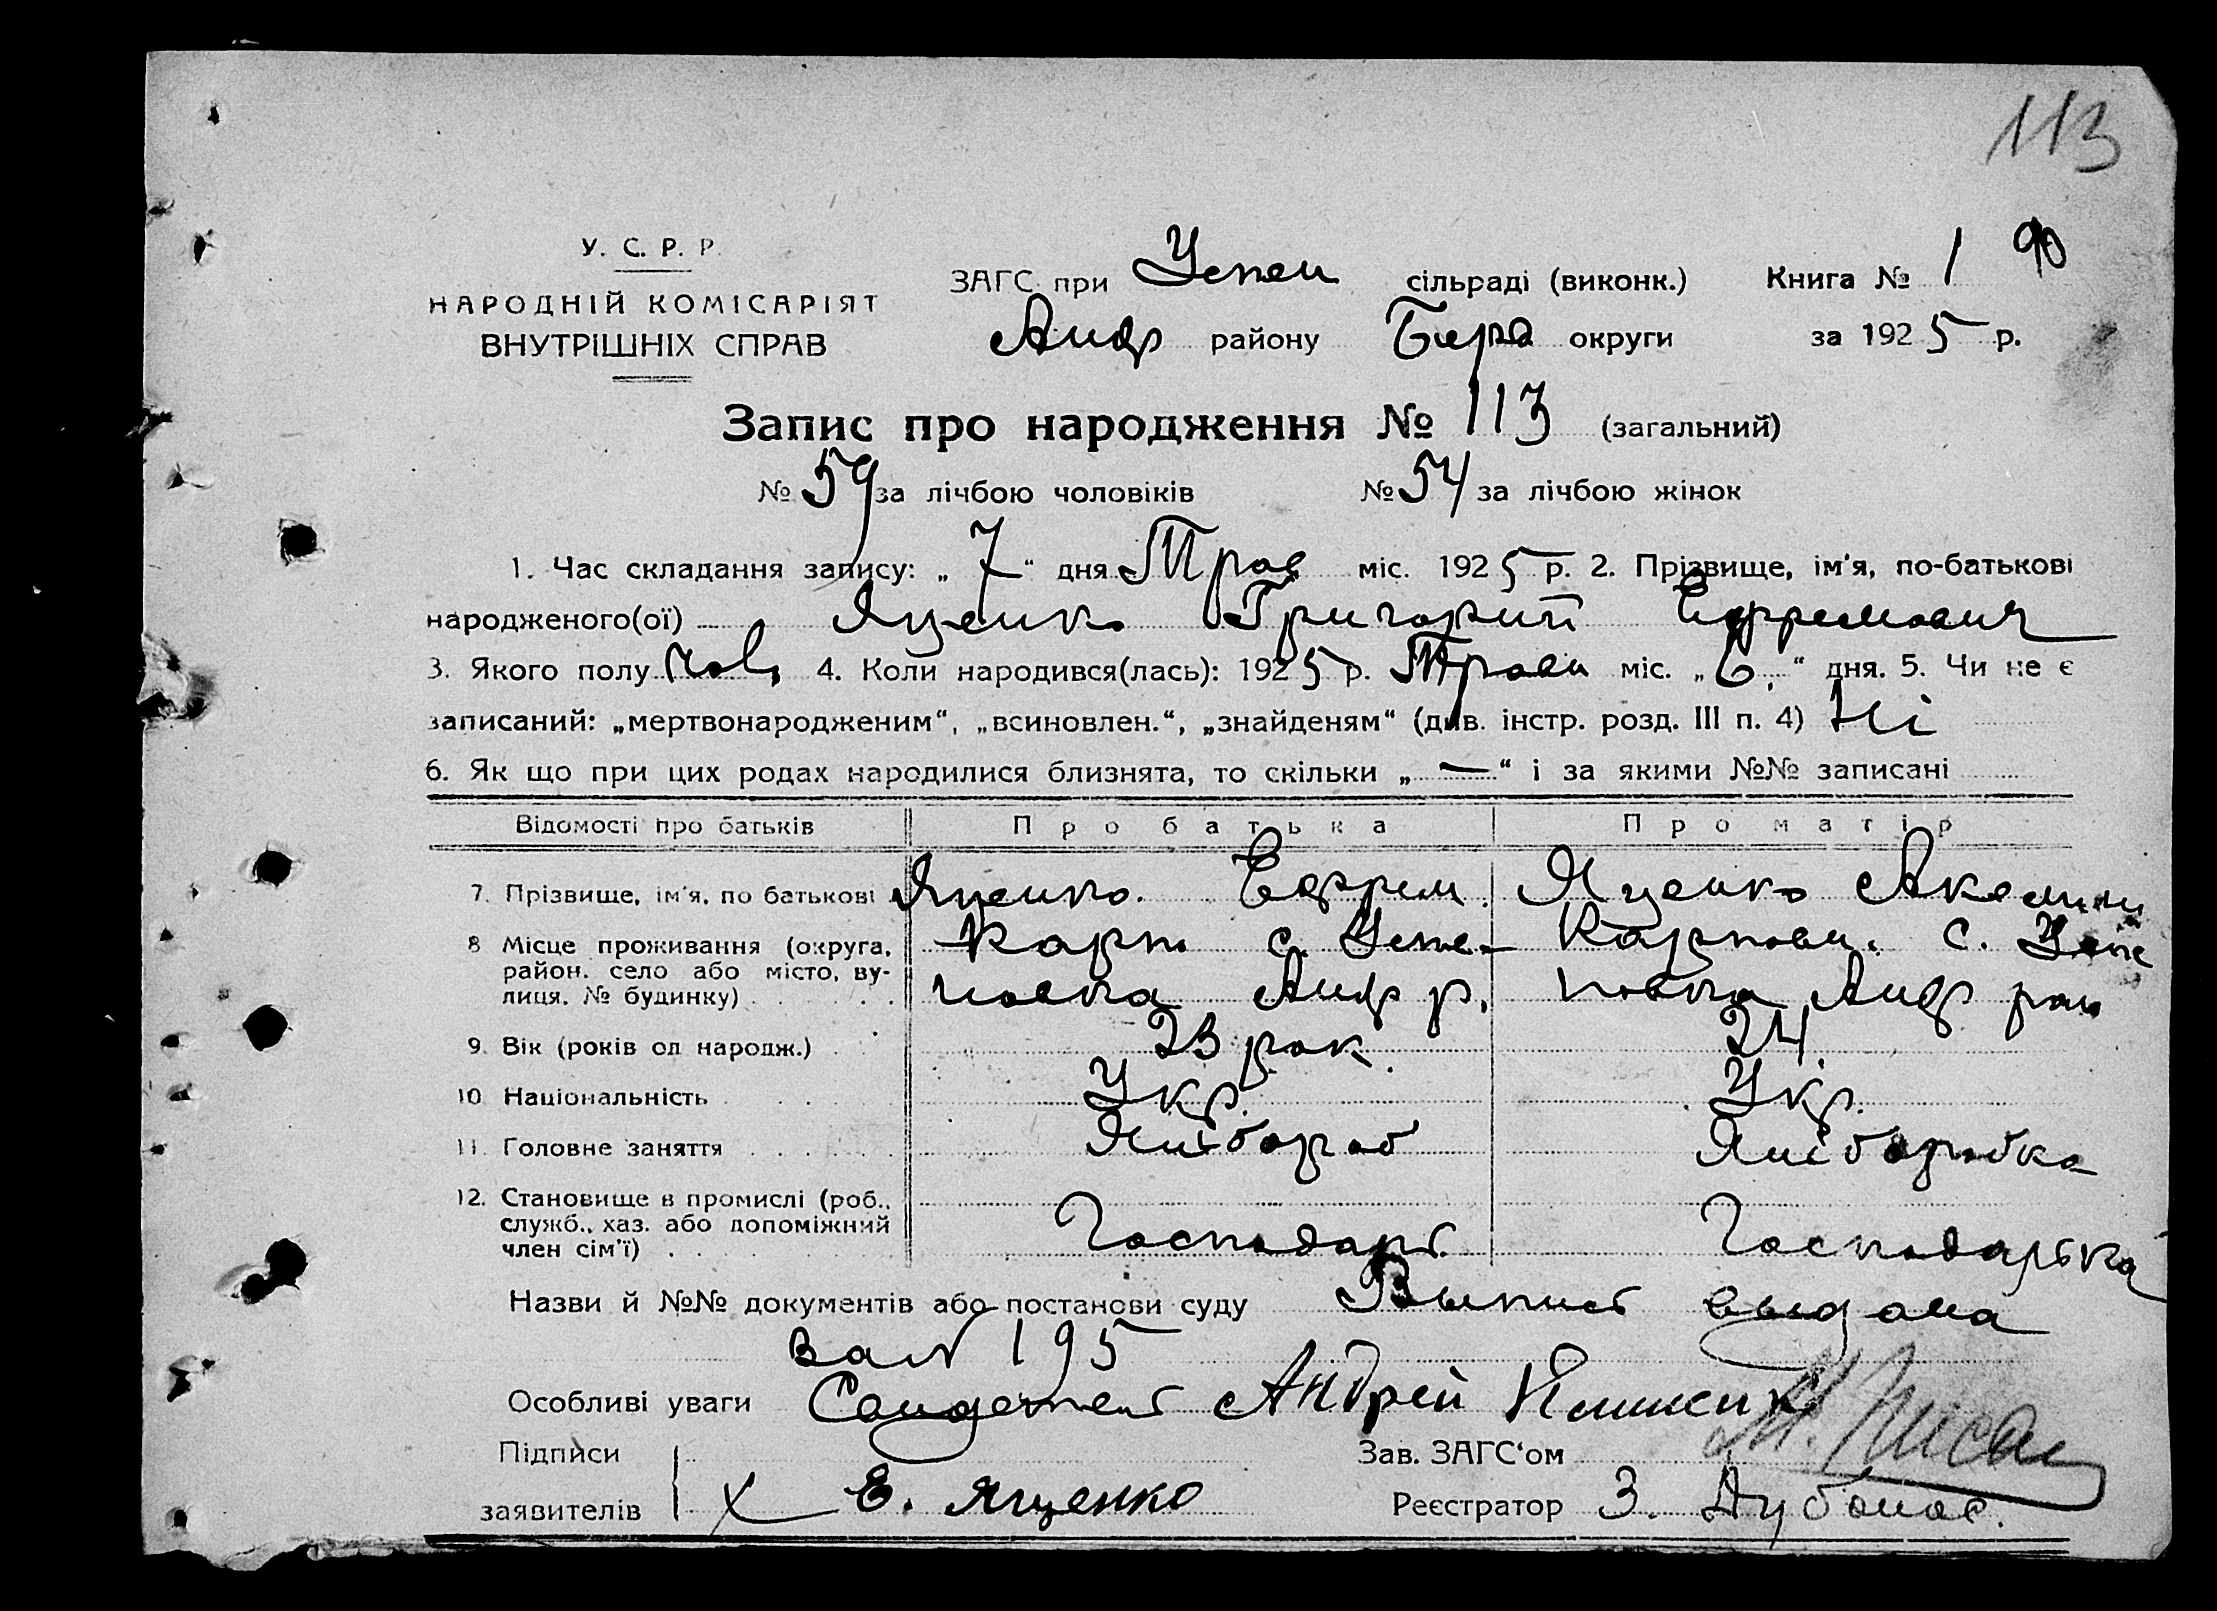 113
У. С. Р. Р.
НАРОДНІЙ КОМІСАРІЯТ
ВНУТРІШНІХ СПРАВ
ЗАГС при Успен сільраді (виконк.) Книга № 1 90
Андр району Берд округи за 1925 р.
Запис про народження № 113 (загальний)
№ 59 за лічбою чоловіків № 54 за лічбою жінок
1. Час складання запису: „ 7 “ дня Трав міс. 1925 р. 2. Прізвище, ім'я, по-батькові
народженого(ої) Яценко Григорий Ефремович
3. Якого полу чол, 4. Коли народився(лась): 1925 р. Травн міс. „ 6 “ дня. 5. Чи не є
записаний: „мертвонародженим“, „всиновлен.“, „знайденям“ (див. інстр. розд. III п. 4) Ні
6. Як що при цих родах народилися близнята, то скільки „ — “ і за якими №№ записані
Відомості про батьків Про батька Про матір
7. Прізвище, ім'я, по батькові Яценко Ефрем Яценко
8 Місце проживання (округа, район, село або місто, вулиця, № будинку) Карп с. Успе- Карповн. с. Успе
новка Андр р. новка Андр рай
9. Вік (років од народж.) 23 рок 24.
10 Національність Укр. Укр.
11. Головне заняття Хлібороб Хліборобка
12. Становище в промислі (роб., служб., хаз. або допоміжний член сім'ї) Господарь Господарька
Назви й №№ документів або постанови суду Выпись выдана
за № 195
Особливі уваги Свидетель Андрей
Підписи Зав. ЗАГС'ом
заявителів Е. Яценко Реєстратор З.